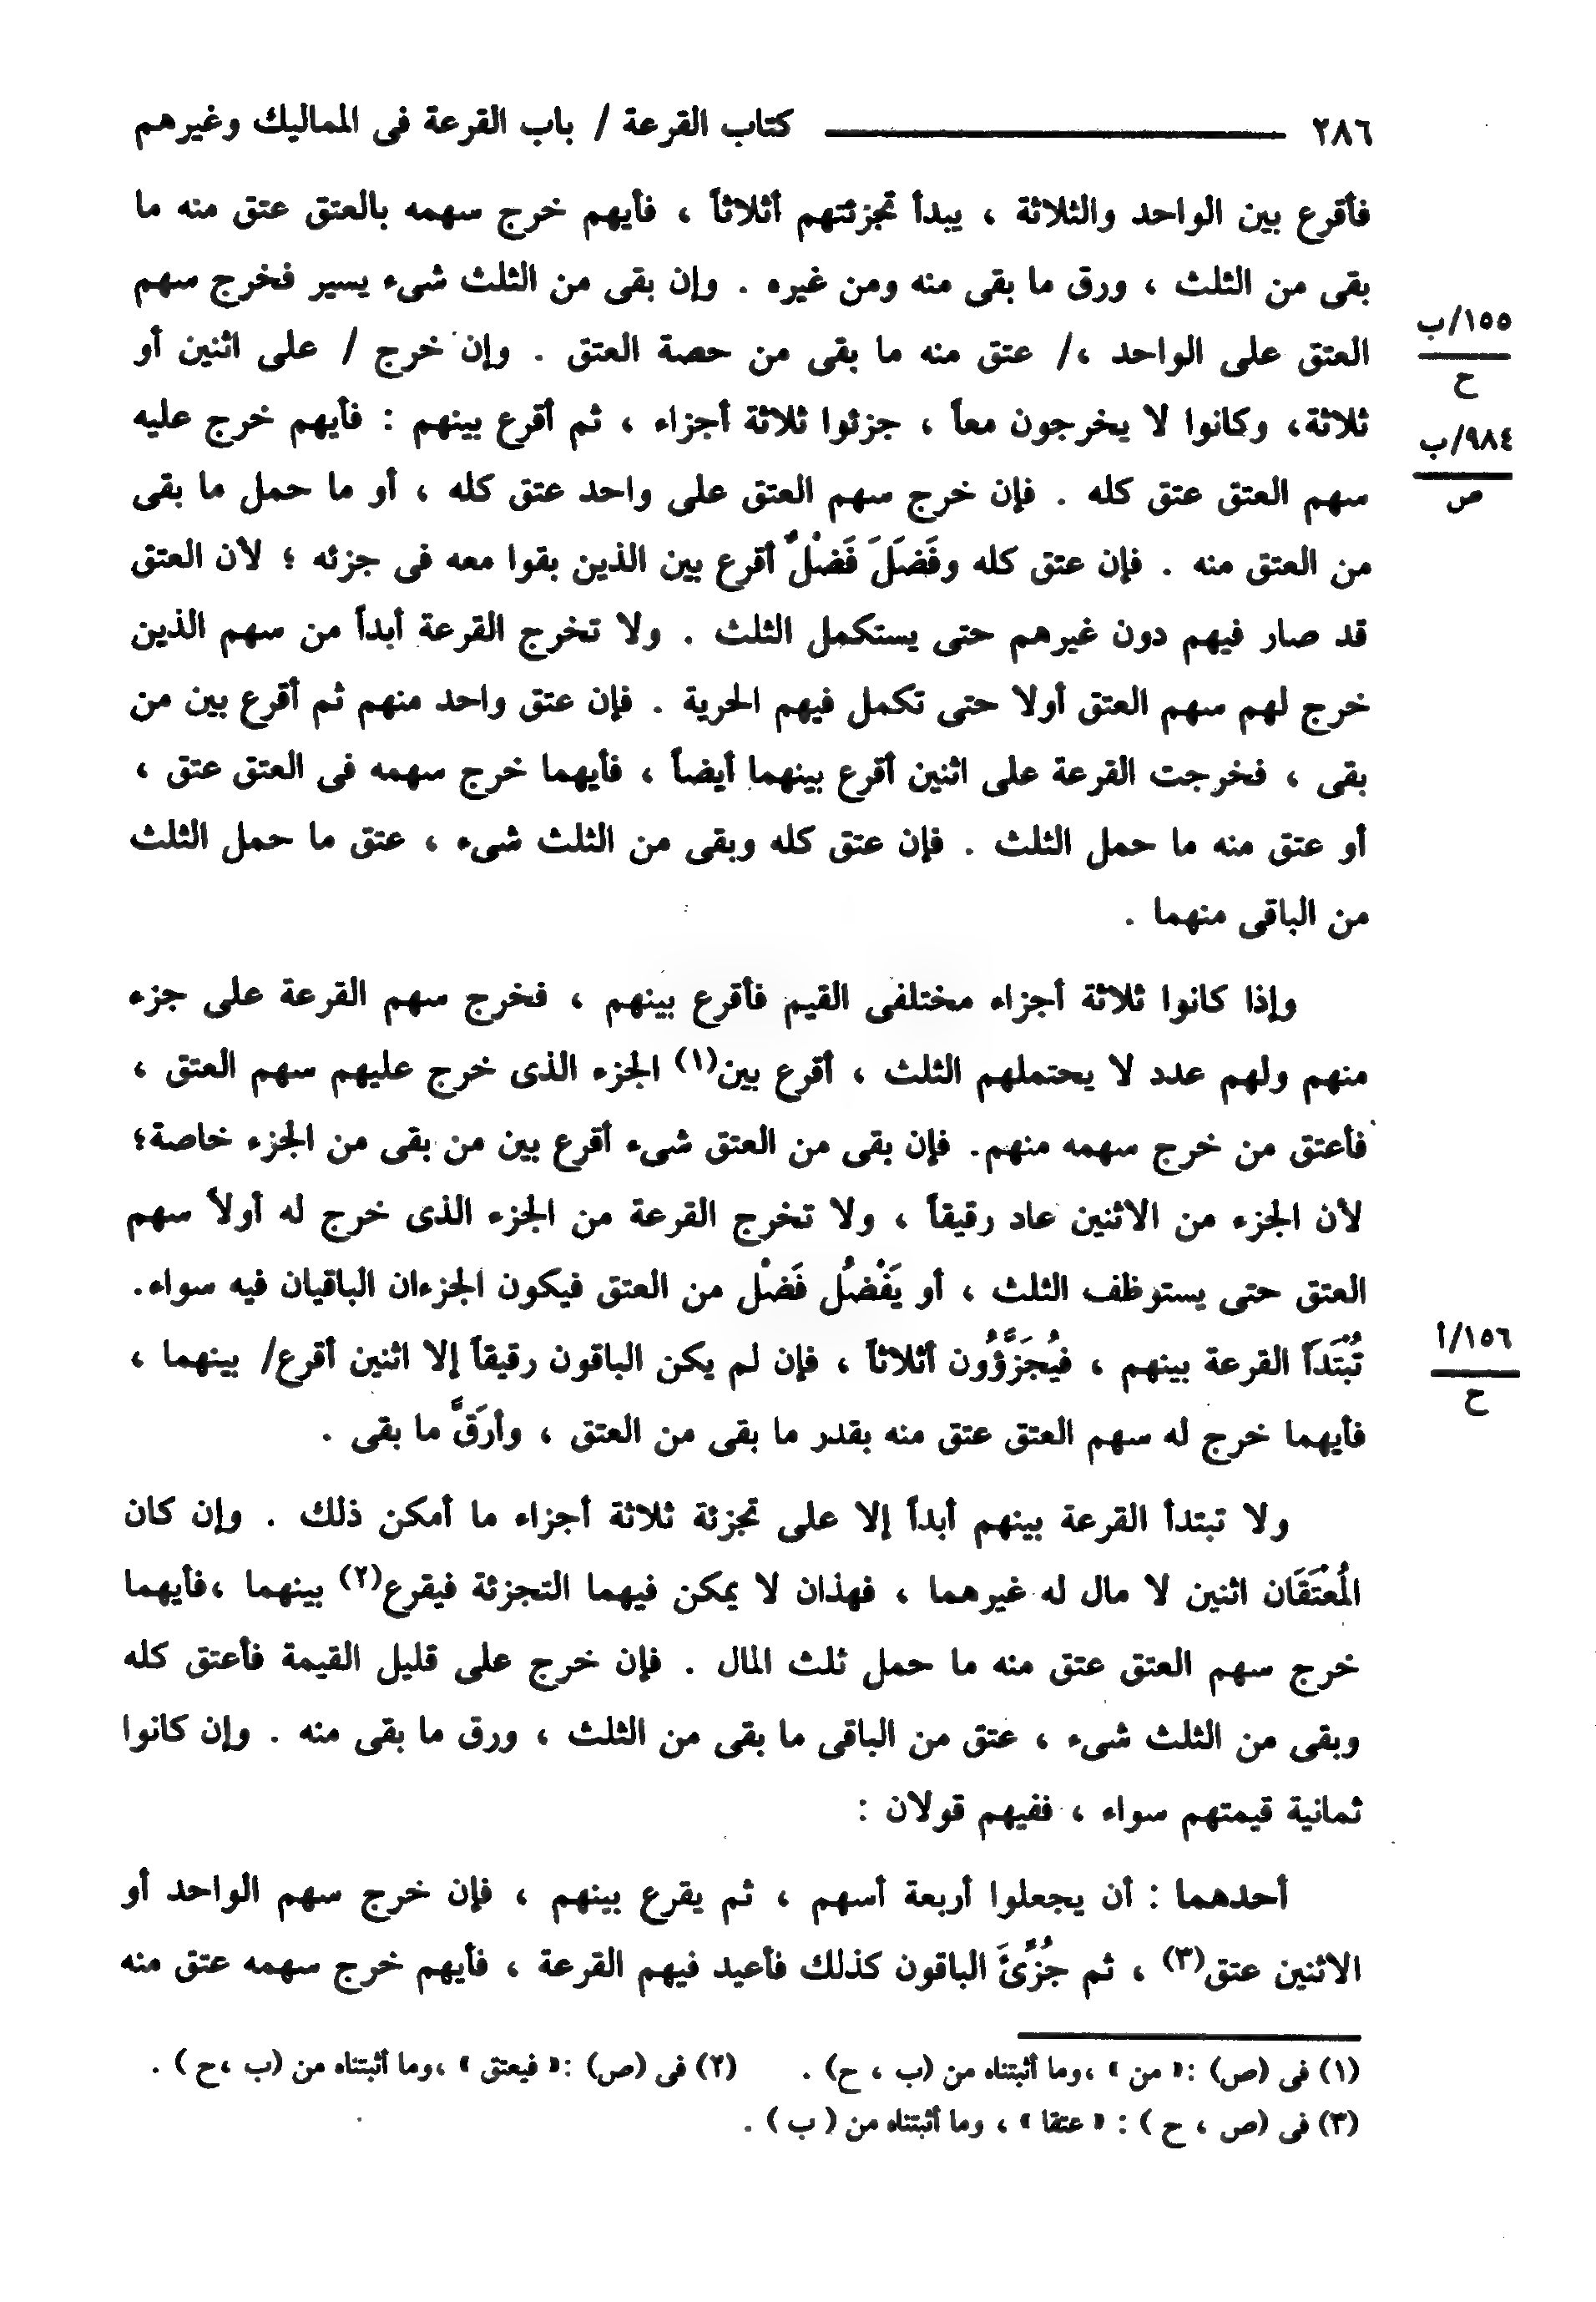 ٢٨٦ كتاب القرعة / باب القرعة فى المماليك وغيرهم
فأقرع بين الواحد والثلاثة ، يبدأ تجزئتهم أثلاثاً ، فأيهم خرج سهمه بالعتق عتق منه ما
بقى من الثلث ، ورق ما بقى منه ومن غيره . وإن بقى من الثلث شىء يسير فخرج سهم
العتق على الواحد ،/ عتق منه ما بقى من حصة العتق . وإن خرج / على اثنين أو
١٥٥/ب
ح
ثلاثة، وكانوا لا يخرجون معاً ، جزئوا ثلاثة أجزاء ، ثم أقرع بينهم : فأيهم خرج عليه
٩٨٤/ب
ص
سهم العتق عتق كله . فإن خرج سهم العتق على واحد عتق كله ، أو ما حمل ما بقى
من العتق منه . فإن عتق كله وفَضَلَ فَضْلٌ أقرع بين الذين بقوا معه فى جزئه ؛ لأن العتق
قد صار فيهم دون غيرهم حتى يستكمل الثلث . ولا تخرج القرعة أبداً من سهم الذين
خرج لهم سهم العتق أولا حتى تكمل فيهم الحرية . فإن عتق واحد منهم ثم أقرع بين من
بقى ، فخرجت القرعة على اثنين أقرع بينهما أيضاً ، فأيهما خرج سهمه فى العتق عتق ،
أو عتق منه ما حمل الثلث . فإن عتق كله وبقى من الثلث شىء ، عتق ما حمل الثلث
من الباقى منهما .
وإذا كانوا ثلاثة أجزاء مختلفى القيم فأقرع بينهم ، فخرج سهم القرعة على جزء
منهم ولهم عدد لا يحتملهم الثلث ، أقرع بين(١) الجزء الذى خرج عليهم سهم العتق ،
فأعتق من خرج سهمه منهم. فإن بقى من العتق شىء أقرع بين من بقى من الجزء خاصة؛
لأن الجزء من الاثنين عاد رقيقاً ، ولا تخرج القرعة من الجزء الذى خرج له أولاً سهم
العتق حتى يستوظف الثلث ، أو يَفْضُل فَضْل من العتق فيكون الجزءان الباقيان فيه سواء.
تُبْتَدَأ القرعة بينهم ، فيُجَزَّؤُون أثلاثاً ، فإن لم يكن الباقون رقيقاً إلا اثنين أقرع/ بينهما ،
١٥٦/أ
ح
فأيهما خرج له سهم العتق عتق منه بقدر ما بقى من العتق ، وأرَقَّ ما بقى .
ولا تبتدأ القرعة بينهم أبداً إلا على تجزئة ثلاثة أجزاء ما أمكن ذلك . وإن كان
المُعْتَقَان اثنين لا مال له غيرهما ، فهذان لا يمكن فيهما التجزئة فيقرع(٢) بينهما ،فأيهما
خرج سهم العتق عتق منه ما حمل ثلث المال . فإن خرج على قليل القيمة فأعتق كله
وبقى من الثلث شىء ، عتق من الباقى ما بقى من الثلث ، ورق ما بقى منه . وإن كانوا
ثمانية قيمتهم سواء ، ففيهم قولان :
أحدهما : أن يجعلوا أربعة أسهم ، ثم يقرع بينهم ، فإن خرج سهم الواحد أو
الاثنين عتق(٣) ، ثم جُزِّئَ الباقون كذلك فأعيد فيهم القرعة ، فأيهم خرج سهمه عتق منه
(١) فى (ص) :« من » ،وما أثبتناه من (ب ، ح) . (٢) فى (ص) :« فيعتق » ،وما أثبتناه من (ب ،ح ) .
(٣) فى (ص ، ح ) : « عتقا » ، وما أثبتناه من ( ب ) .